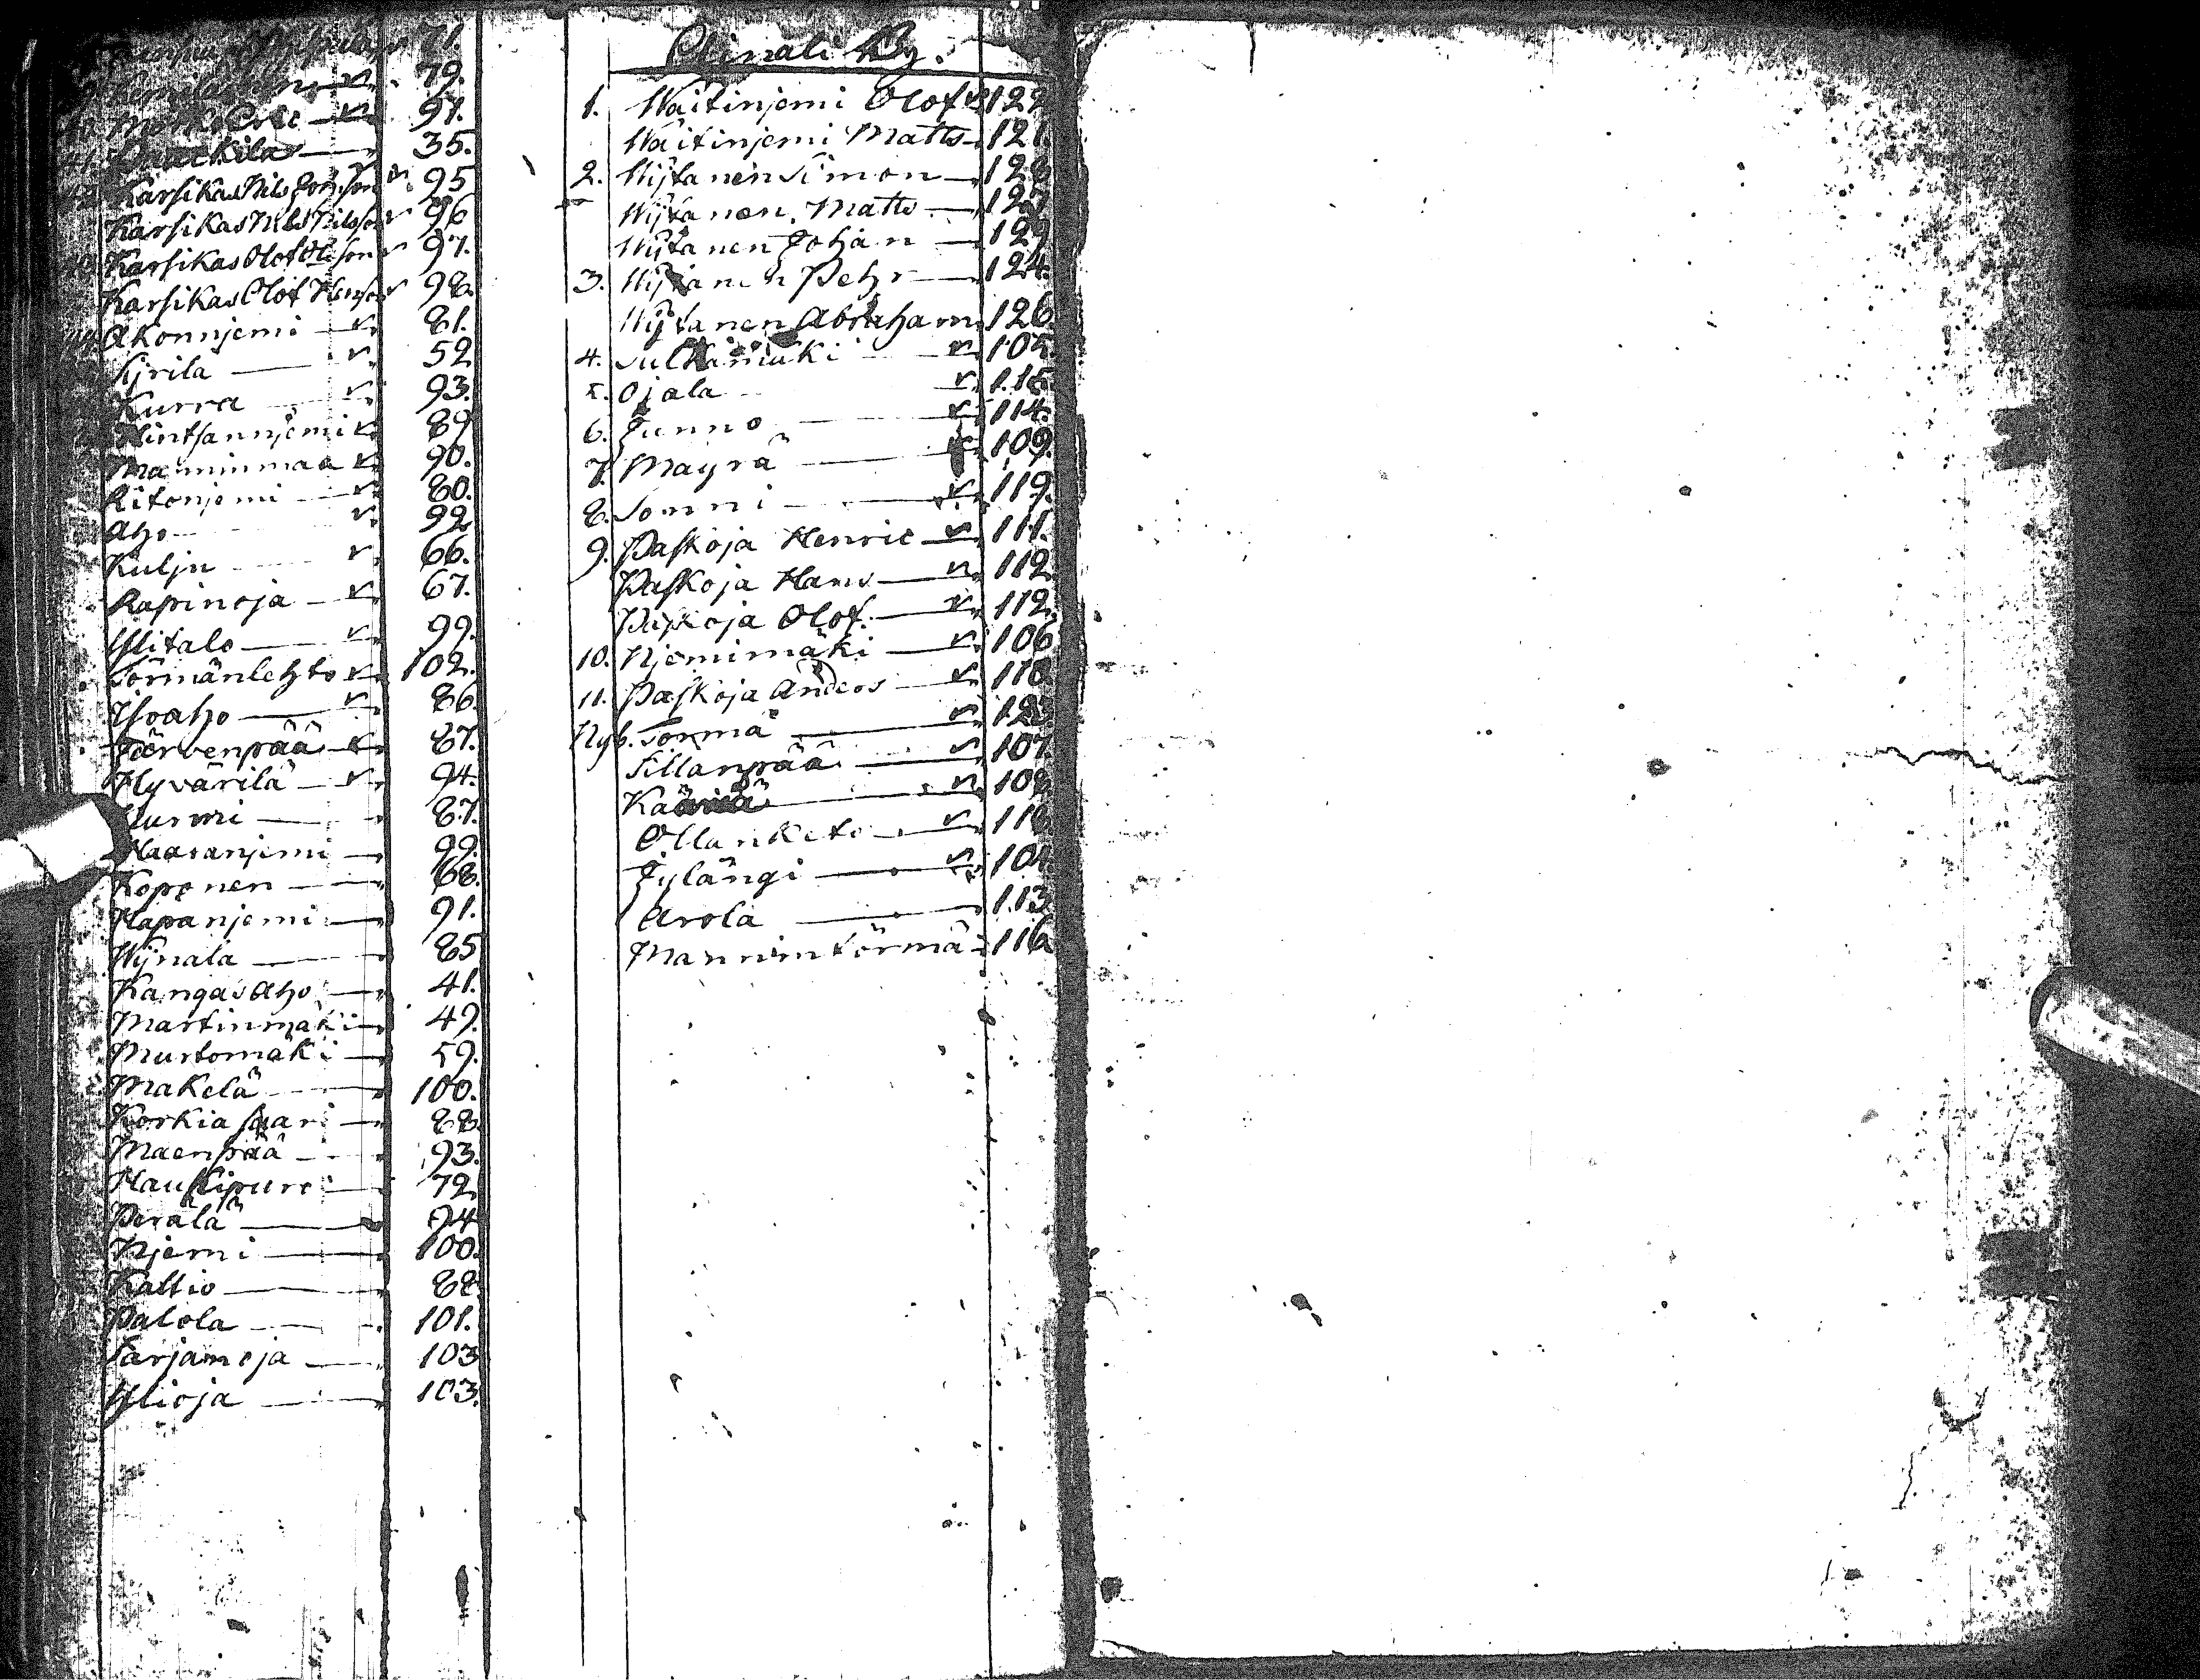 71.
79.
40. Eric 97.
41. 35.
42. Karsikas Nils Joh.son 95
Karsikas Nils Nilsson 96
43. Karsikas Olof Ols son 97.
Karsikas Olof Hansson 98.
44. Akonnjemi 81.
Sjrila 52
Kurra 93.
Hintsannjemi 89
Manninmaa 90.
Ritonjemi 80.
Aho 92
Kulju 66.
Rapinoja 67.
Ylitalo 99.
Törmänlehto 102.
Isoaho 86.
Järvenpää 87.
Hyvärilä 94.
Nurmi 87.
Haaranjemi 99.
Koponen 68.
Hapanjemi 91.
Wijnala 85
Kangas Aho 41.
Martinmäki 49.
Murtomäki 59.
Makelä 100.
Korkiasaari 88
Maenpää 93.
Haukipuro 72
Perälä 94
Njemi 100.
Kaltio 88
Palola 101.
Tarjamoja 103
Ylioja 103.
By.
1. Waitinjemi Olof 122
Waitinjemi Matts 121.
2. Wijtanen Simon 128
Wijtanen Matts 127
Wijtanen Johan 129
3. Wijtanen Pehr 124.
Wijtanen Abraham 126.
4. Sulkamäki 105.
5. Ojala 115.
6. Junno 114.
7. Mäyrä 109.
8. Sonni 119.
9. Paskoja Henric 111.
Paskoja Hans 112
Paskoja Olof 112.
10. Njemimäki 106
11. Paskoja Anders 110.
Nyb. Tormä 123.
Sillanpää 107.
108.
Ollanketo 118.
Jylängi 104.
Arola 113
Mannintörmä 116